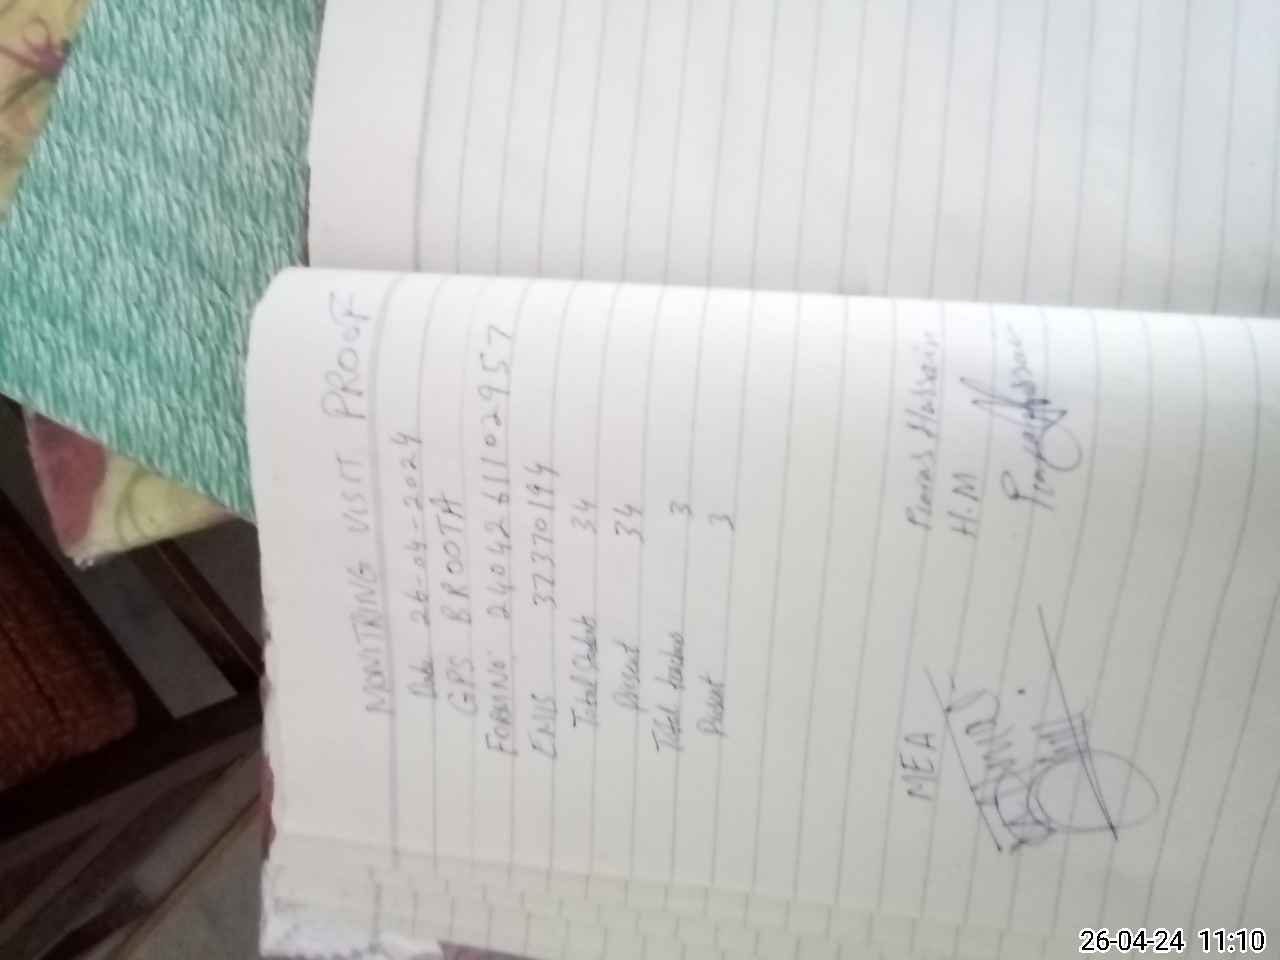 MONITRING VISIT PROOF
Date 26-04-2024
GPS BROOTA
FORM NO: 24042611029 57
EMIS 37370194
Total Student 34
Present 34
Total teachers 3
Present 3
MEA
Hassain
H.M
26-04-24 11:10